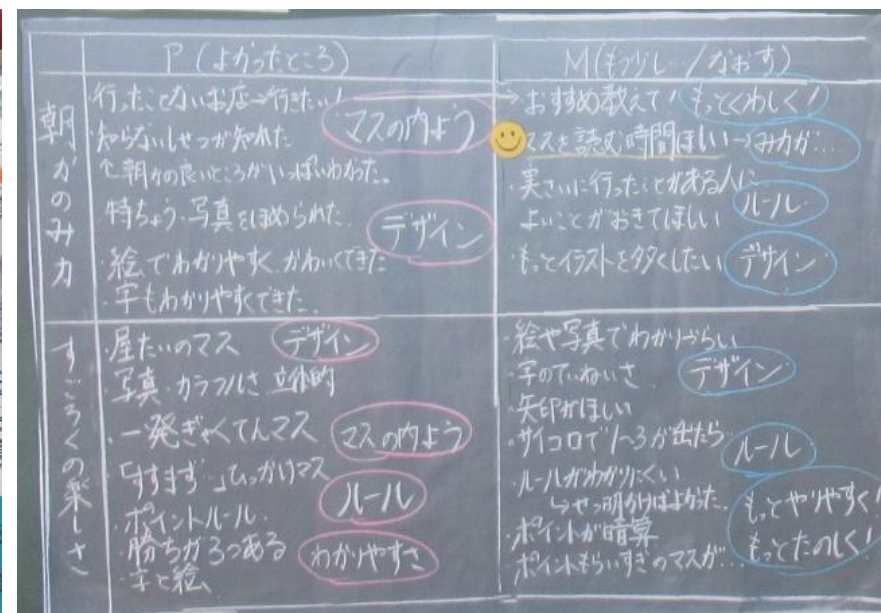 P (よかったところ)
M(もう少し…/なおす)
朝かのみ力
・行ったことないお店→行きたい!
・知らないしせつが知れた
↑朝かの良いところがいっぱいわかった。
マスの内よう
・特ちょう・写真をほめられた
・絵でわかりやすく かわいくできた
・字もわかりやすくできた
デザイン
おすすめ教えて! もっとくわしく!
マスを読む時間ほしい→み力が…
・実さいに行ったことがある人に
よいことがおきてほしい
ルール
・もっとイラストを多くしたい
デザイン
すごろくの楽しさ
・屋たいのマス
デザイン
・写真・カラフルさ 立体的
・一発ぎゃくてんマス
マスの内よう
・「すすまず」ひっかけマス
・ポイントルール
ルール
・勝ちが3つある
・字と絵
わかりやすさ
・絵や写真でわかりづらい
・字のていねいさ
デザイン
・矢印がほしい
・サイコロで1~3が出たら
ルール
・ルールがわかりにくい
↳せつ明かけばよかった。
・ポイントが暗算
・ポイントもらいすぎのマスが…
もっとやりやすく!
もっとたのしく!